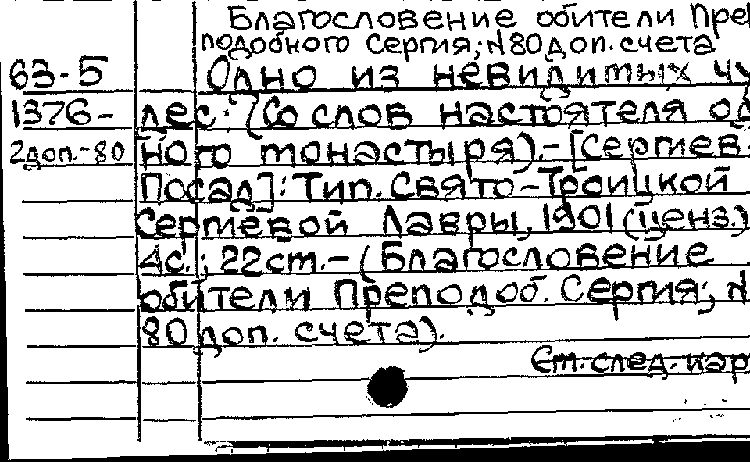 Благословение обители Пре
подобного Сергия; N80 доп. счета
63-5 Одно из невидимых чу
1376- дес. (Со слов настоятеля од
2 доп.-80 ного монастыря).-[Сергиев.
Посад]: Тип. Свято-Троицкой
Сергиевой Лавры, 1901 (ценз.)
4с.; 22см.-(Благословение
обители Преподоб. Сергия; N
80 доп. счета).
См. след. кар